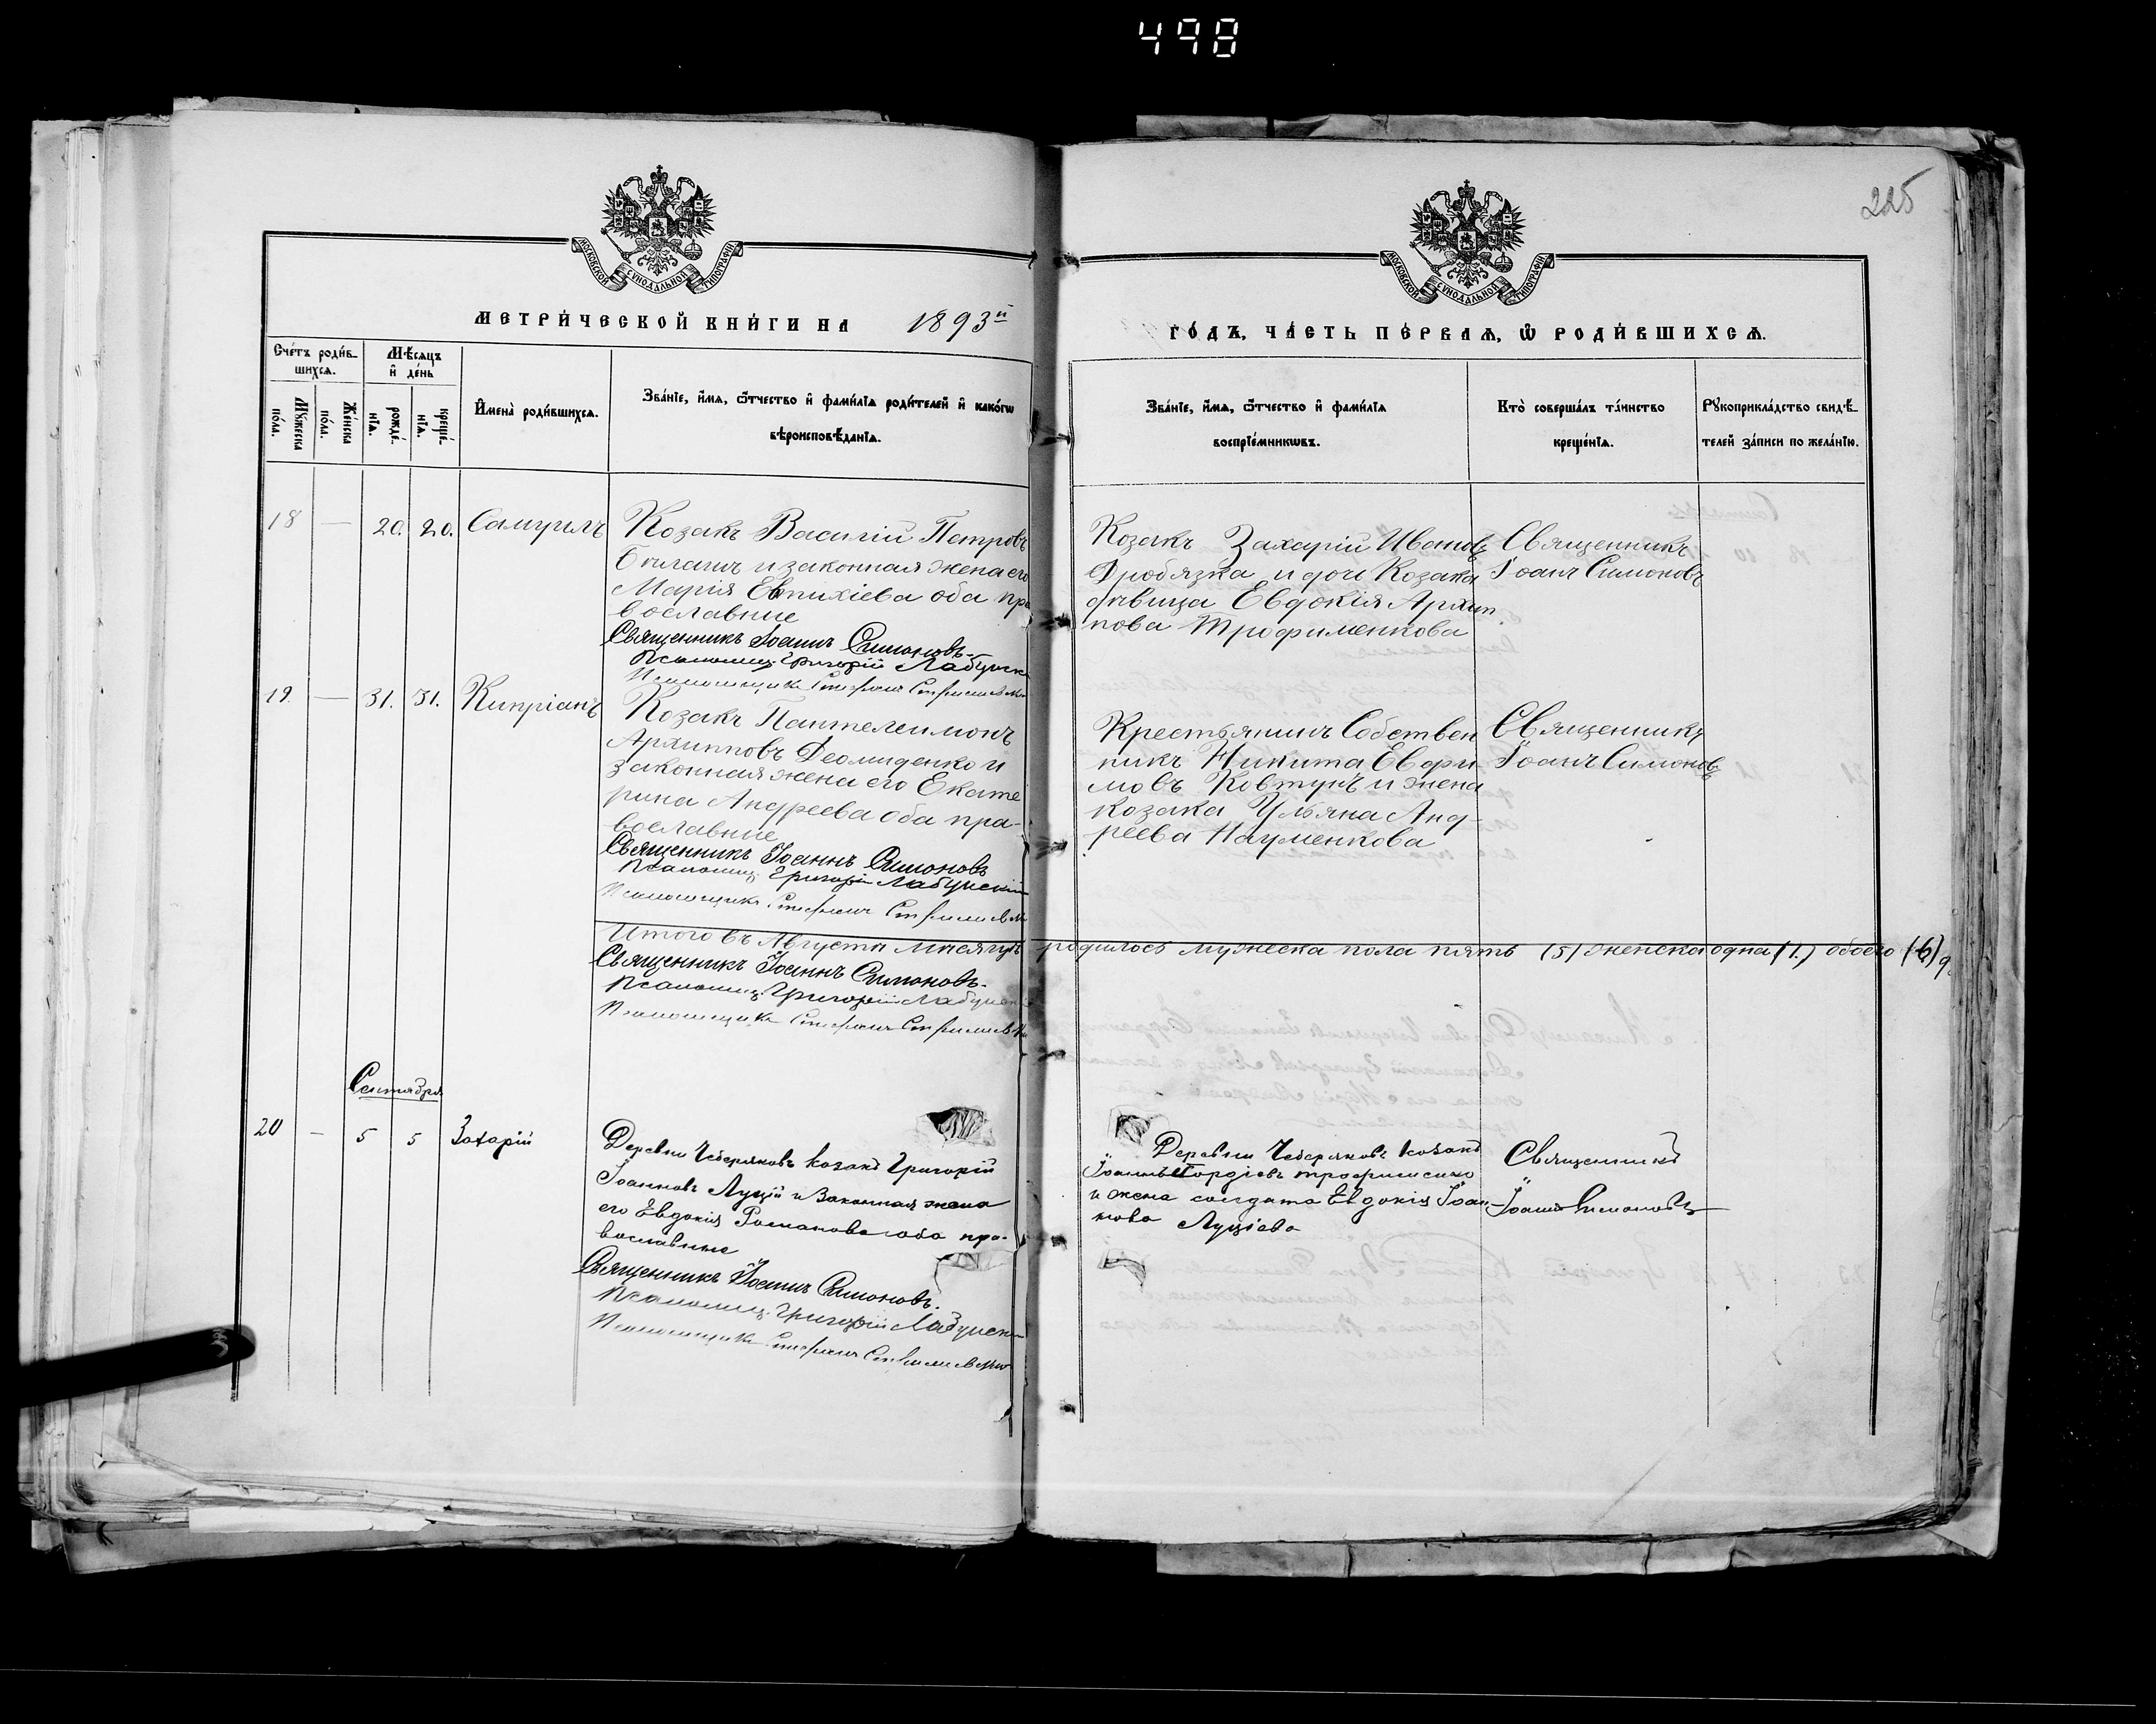 498
225
МОСКОВСКОЙ СУНОДАЛЬНОЙ ТИПОГРАФІИ
МОСКОВСКОЙ СУНОДАЛЬНОЙ ТИПОГРАФІИ
МЕТРИ́ЧЕСКОЙ КНИ́ГИ НА 1893й
ГО́ДЪ, ЧА́СТЬ ПЕ́РВАѦ, Ѡ҆ РОДИ́ВШИХСѦ.
Сче́тъ роди́в-
шихсѧ.
Мѣ́сѧцъ
и҆ де́нь
Мꙋ́жеска
по́ла.
Же́нска
по́ла.
рожде́-
нїѧ.
креще́-
нїѧ.
И҆мена̀ роди́вшихсѧ.
Зва́нїе, и҆́мѧ, ѻ҆́тчество и҆ фами́лїѧ роди́телей и҆ како́гѡ
вѣроисповѣ́данїѧ.
Зва́нїе, и҆́мѧ, ѻ҆́тчество и҆ фами́лїѧ
воспрїе́мникѡвъ.
Кто̀ соверша́лъ та́инство
креще́нїѧ.
Рꙋкоприкла́дство свидѣ́-
телей за́писи по жела́нїю.
18 — 20. 20. Самуилъ
Козакъ Василій Петровъ
и законная жена его
Марія Евтихіева оба пра
вославные
Священникъ Іоаннъ Симоновъ.
Псаломщ. Григорій Лабунскі
Псаломщикъ Стефанъ
Козакъ Захарій Ивановъ
Дробязка и дочь Козака
дѣвица Евдокія Архип
пова Трофименкова
Священникъ
Іоаннъ Симоновъ
19. — 31. 31. Кипріанъ
Козакъ Пантелеимонъ
Архипповъ Деомиденко и
законная жена его Екате
рина Андреева оба пра-
вославные
Священникъ Іоаннъ Симоновъ
Псаломщ. Григорій Лабунскій
Псаломщикъ Стефанъ
Крестьянинъ Собствен
никъ Никита Евфи
мовъ Ковтунъ и жена
козака Ульяна Анд-
реева Науменкова
Священникъ
Іоаннъ Симоновъ
Итого въ Августѣ мѣсяцѣ родилось мужеска пола пять (5) женска одна (1.) обоего (6)
Священникъ Іоаннъ Симоновъ.
Псаломщ. Григорій Лабунскі
Псаломщикъ Стефанъ
Сентября
20 — 5 5 Захарій
Деревни Чеберяковъ козакъ Григорій
Іоанновъ Луцій и законная жена
его Евдокія Романова оба пра-
вославные
Священникъ Іоаннъ Симоновъ.
Псаломщ. Григорій Лабунскі
Псаломщикъ Стефанъ
Деревни Чеберяковъ козакъ
Іоаннъ Гордіевъ Трофименко
и жена солдата Евдокія Іоан-
нова Луціева
Священникъ
Іоаннъ Симоновъ